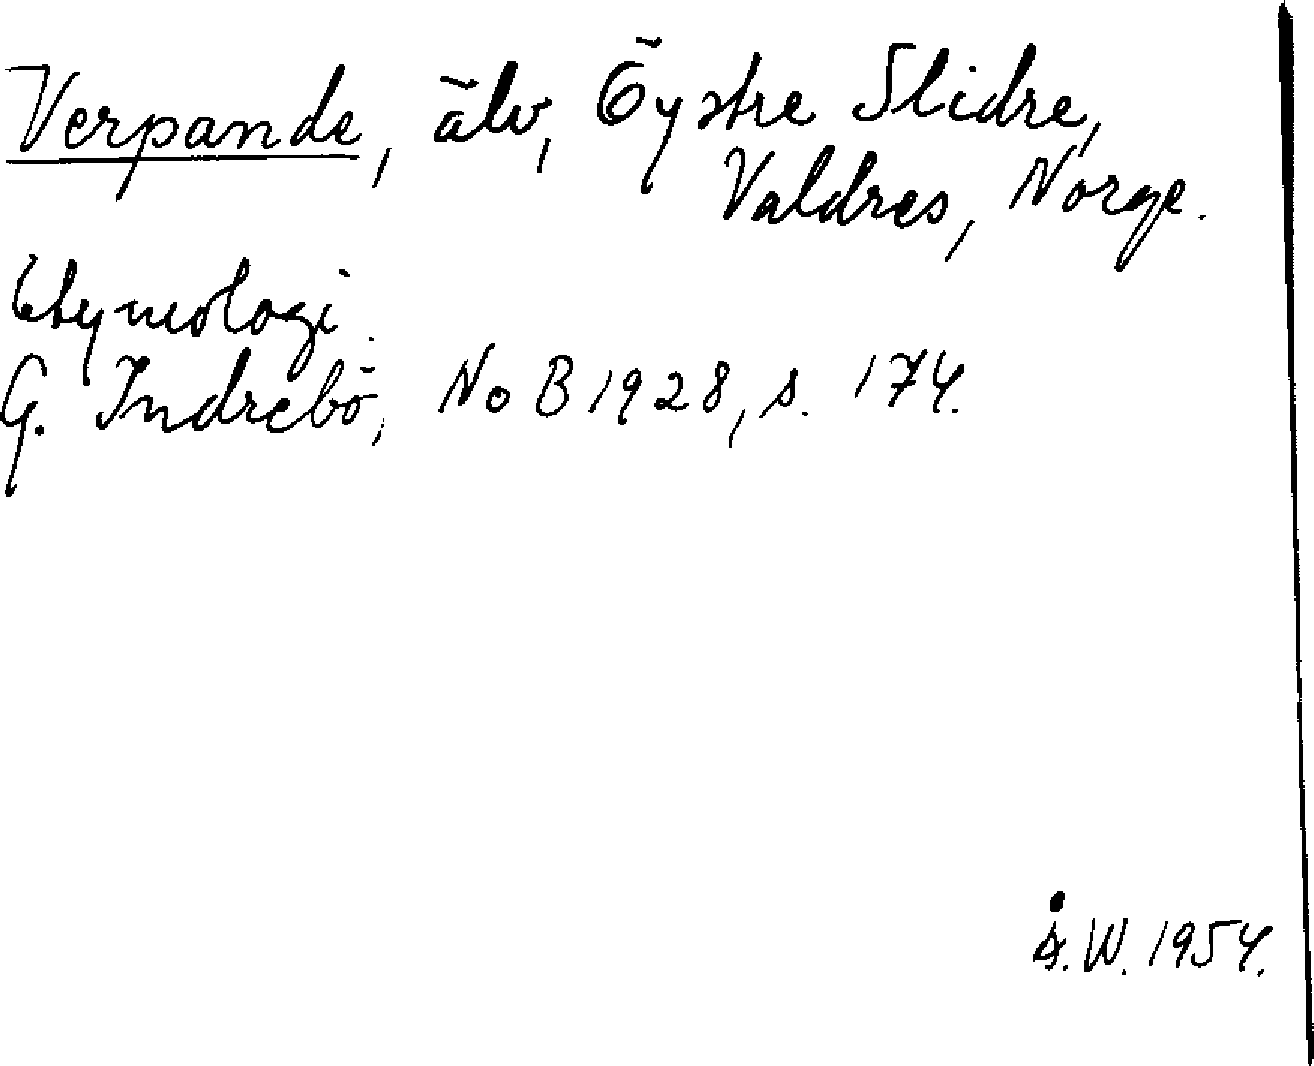 Verpande, älv, Öystre Slidre,
Valdres, Norge.
Etymologi.
G. Indrebö, NoB 1928, s. 174.
Å.W. 1954.